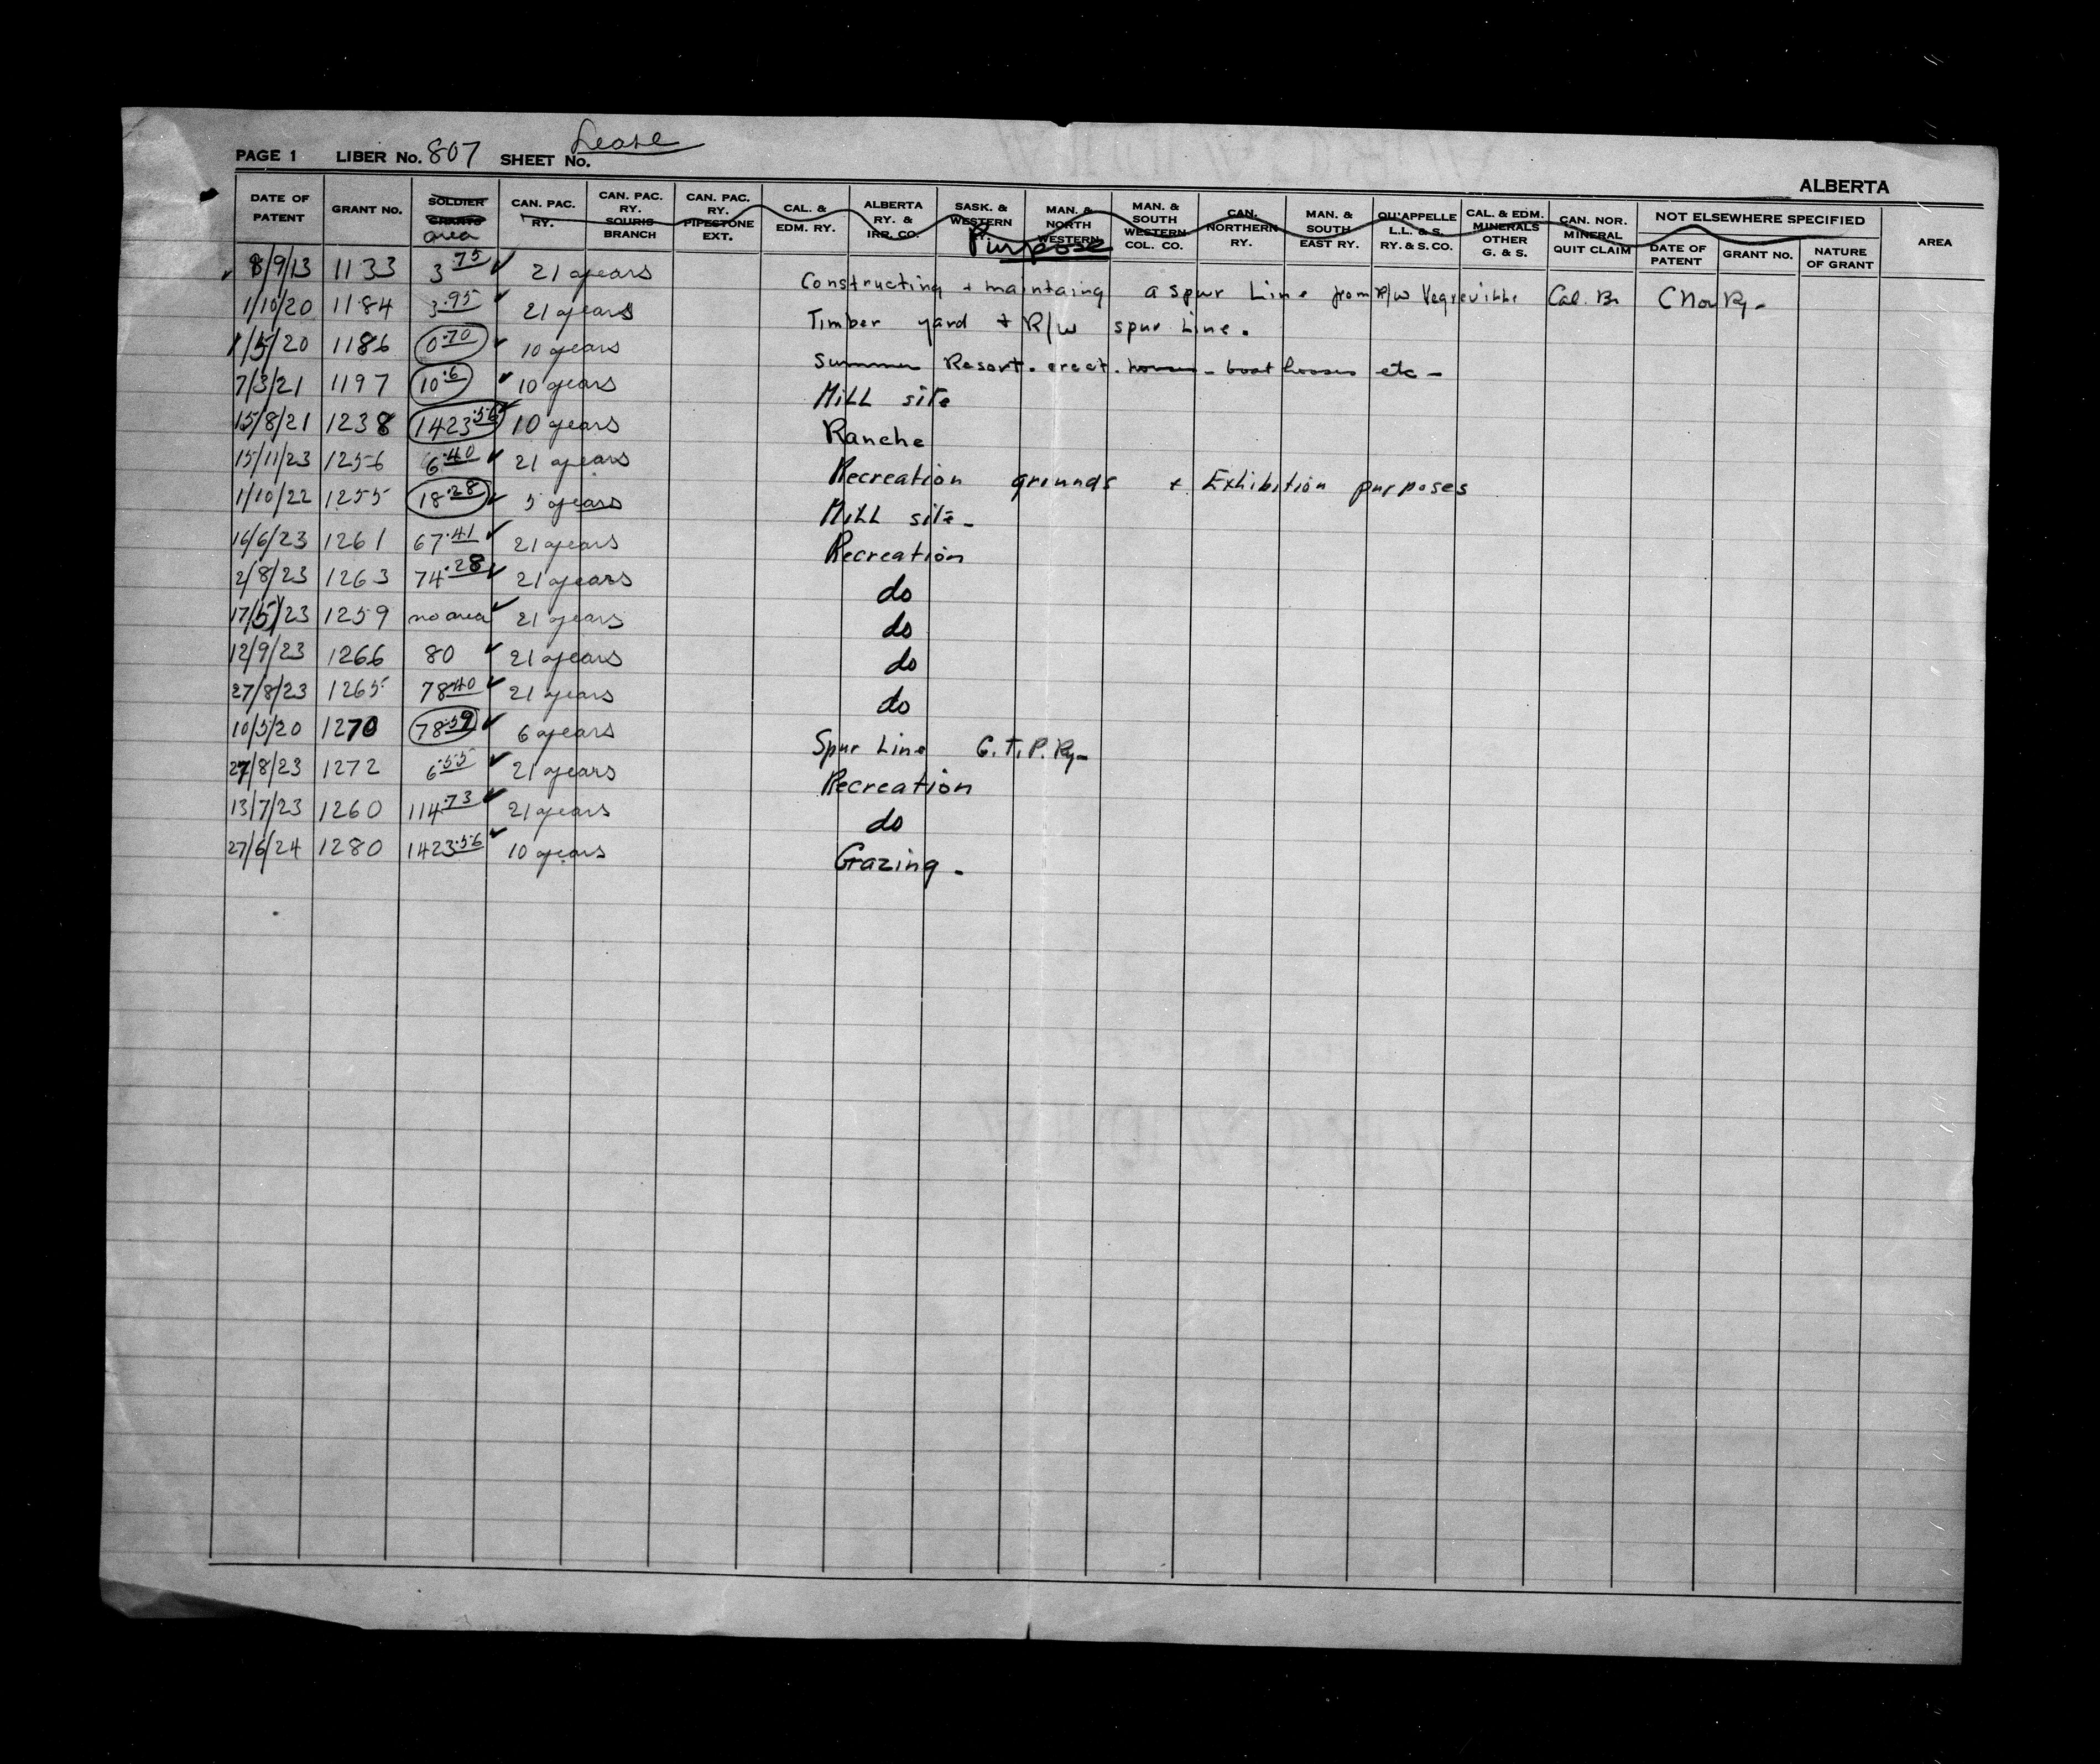 Lease
PAGE 1 LIBER No. 807 SHEET No.
ALBERTA
DATE OF PATENT GRANT NO. SOLDIER GRANTS area CAN. PAC. RY. CAN. PAC. RY. SOURIS BRANCH CAN. PAC. RY. PIPESTONE EXT. CAL. & EDM. RY. ALBERTA RY. & IRR. CO. SASK. & WESTERN MAN. & NORTH WESTERN MAN. & SOUTH WESTERN COL. CO. CAN. NORTHERN RY. MAN. & SOUTH EAST RY. QU'APPELLE L.L. & S. RY. & S. CO. CAL. & EDM. MINERALS OTHER G. & S. CAN. NOR. MINERAL QUIT CLAIM NOT ELSEWHERE SPECIFIED DATE OF PATENT GRANT NO. NATURE OF GRANT AREA
Purpose
8/9/13 1133 3.75 ✓ 21 years Constructing + maintaing a spur Line from R/W Vegreville Cal. Br. C Nor Ry-
1/10/20 1184 3.95 ✓ 21 years Timber yard + R/W spur Line.
1/5/20 1186 0.70 ✓ 10 years Summer Resort. erect. houses - boat houses etc -
7/3/21 1197 10.6 ✓ 10 years Mill site
15/8/21 1238 1423.56 ✓ 10 years Ranche
15/11/23 1256 6.40 ✓ 21 years Recreation grounds + Exhibition purposes
1/10/22 1255 18.28 ✓ 5 years Mill site-
16/6/23 1261 67.41 ✓ 21 years Recreation
2/8/23 1263 74.28 ✓ 21 years do
17/5/23 1259 no area ✓ 21 years do
12/9/23 1266 80 ✓ 21 years do
27/8/23 1265 78.40 ✓ 21 years do
10/5/20 1270 78.59 ✓ 6 years Spur Line G.T.P. Ry-
27/8/23 1272 6.55 ✓ 21 years Recreation
13/7/23 1260 114.73 ✓ 21 years do
27/6/24 1280 1423.56 ✓ 10 years Grazing -